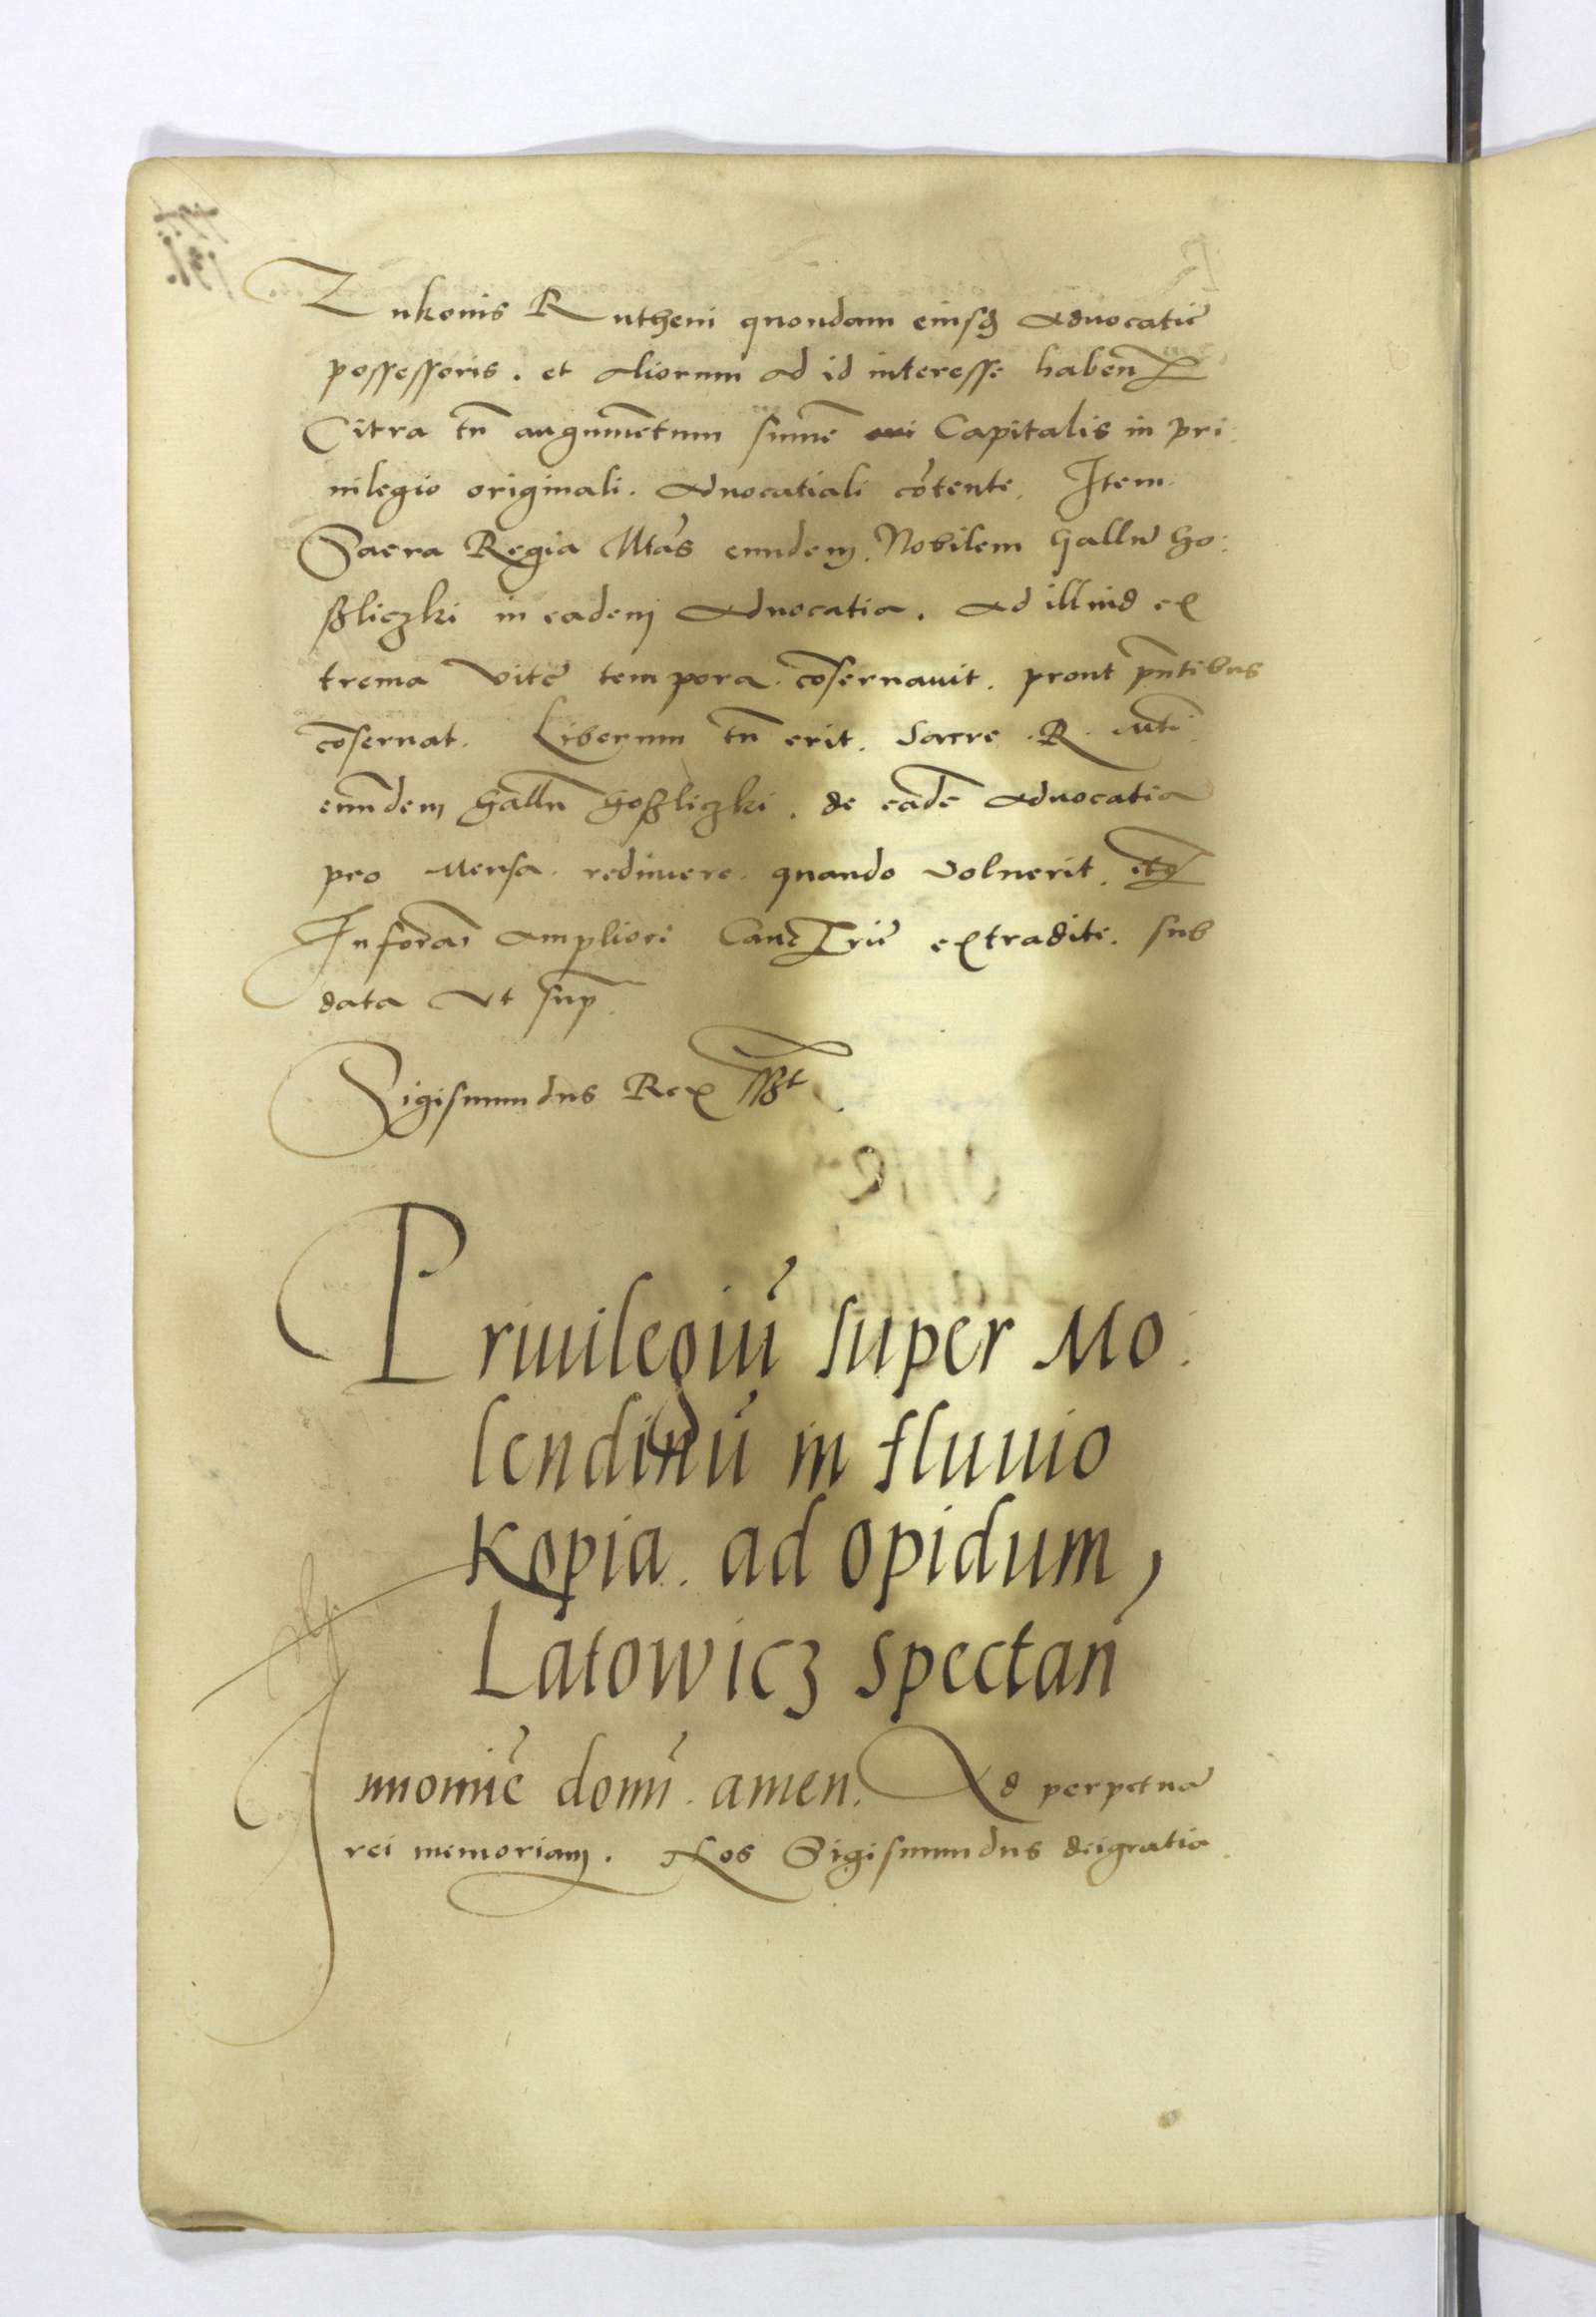 Zukonis Rutheni quondam eiusq; Aduocatiē
possessoris. et Aliorum Ad id interesse habeñ
Citra tñ augumētum sumē Capitalis in pri
uilegio originali. Aduocatiali cōtente. Item
Sacra Regia Mtās eundem. Nobilem Gallū Go:
ßliczki in eadem Aduocatia. Ad illud ex
trema vitē tempora. cōseruauit. prout pñtibus
cōseruat. Liberum tñ erit. Sacre R. Mti
eundem Gallū Goßliczki. de eadē Aduocatia
pro Mensa. redimere. quando voluerit. etq
In forā ampliori Cancrie extradite. sub
data vt sup
Sigismundus Rex sst
Priuilegiū super Mo:
lendinū in fluuio
Kopia. ad opidum,
Latowicz spectañ
In nomīe domī. amen. Ad perpetuā
rei memoriam. Nos Sigismundus deigratia